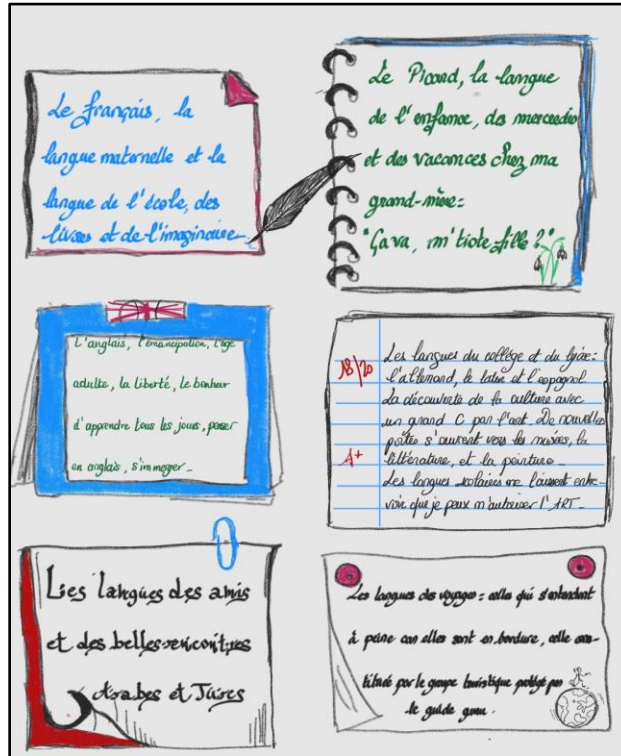 Le français, la
langue maternelle et la
langue de l'école, des
livres et de l'imaginaire.
Le Picard, la langue
de l'enfance, des mercredis
et des vacances chez ma
grand-mère :
"Ça va, m'tiote fille ?"
L'anglais, l'émancipation, l'âge
adulte, la liberté, le bonheur
d'apprendre tous les jours, penser
en anglais, s'immerger_
18/20
A+
Les langues du collège et du lycée :
l'allemand, le latin et l'espagnol
La découverte de la culture avec
un grand C par l'art. De nouvelles
portes s'ouvrent vers les musées, la
littérature, et la peinture_
Les langues scolaires me laissent entre-
voir que je peux m'autoriser l'ART_
Les langues des amis
et des belles rencontres
Arabes et Turcs
Les langues des voyages : celles qui s'entendent
à peine car elles sont en bordure, celle cons-
tituée par le groupe touristique protégé par
le guide